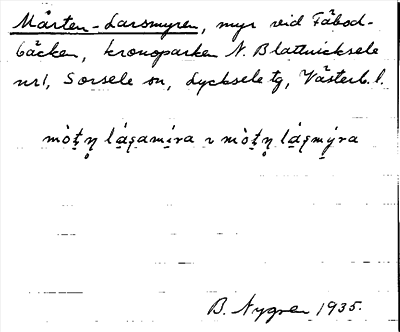 Mårten-Larsmyren, myr vid Fäbod-
bäcken, kronoparken N. Blattnicksele
nr 1, Sorsele sn, Lycksele tg, Västerb. l.
mòt̠n̥ lás̠amíra ~ mòt̠n̥ lás̠mýra
B. Nygren 1935.